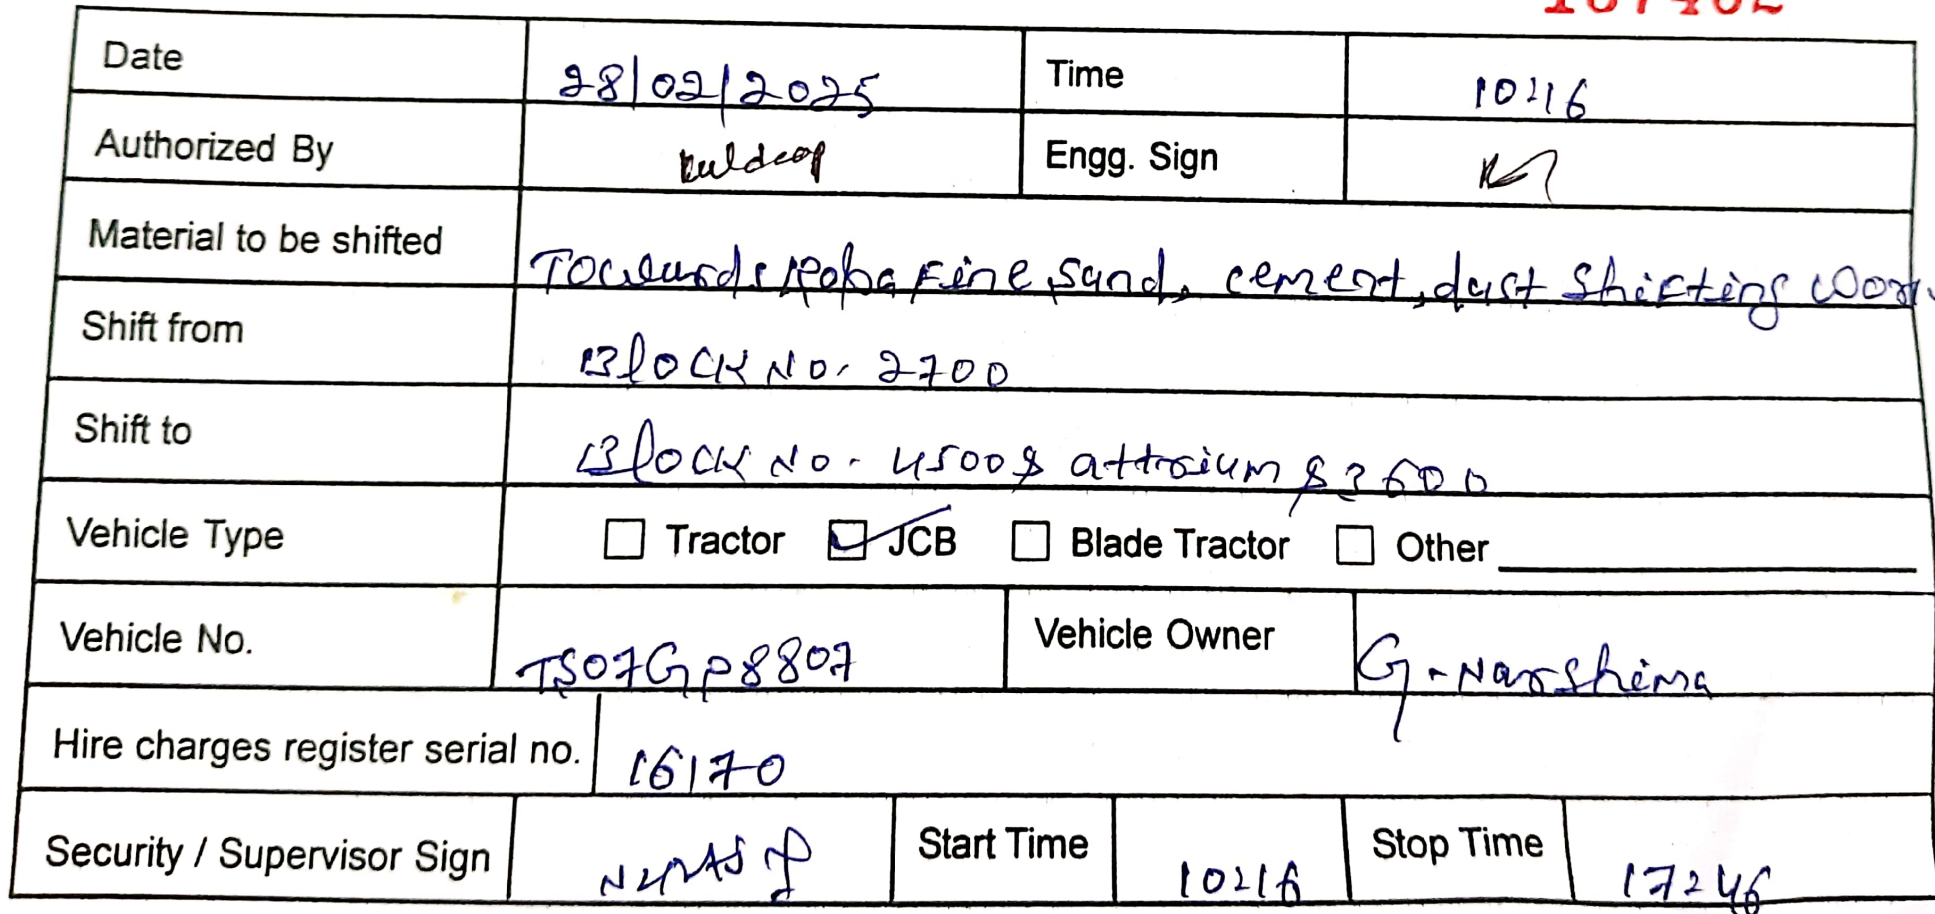 Date 28/02/2025 Time 10:16
Authorized By Kuldeep Engg. Sign
Material to be shifted Towards Roba Fine Sand, cement, dust Shifting Work
Shift from Block No. 2700
Shift to Block No. 4500 & attrium & 3600
Vehicle Type Tractor JCB Blade Tractor Other
Vehicle No. TS07GP8807 Vehicle Owner G. Narshima
Hire charges register serial no. 16170
Security / Supervisor Sign Start Time 10:16 Stop Time 17:46